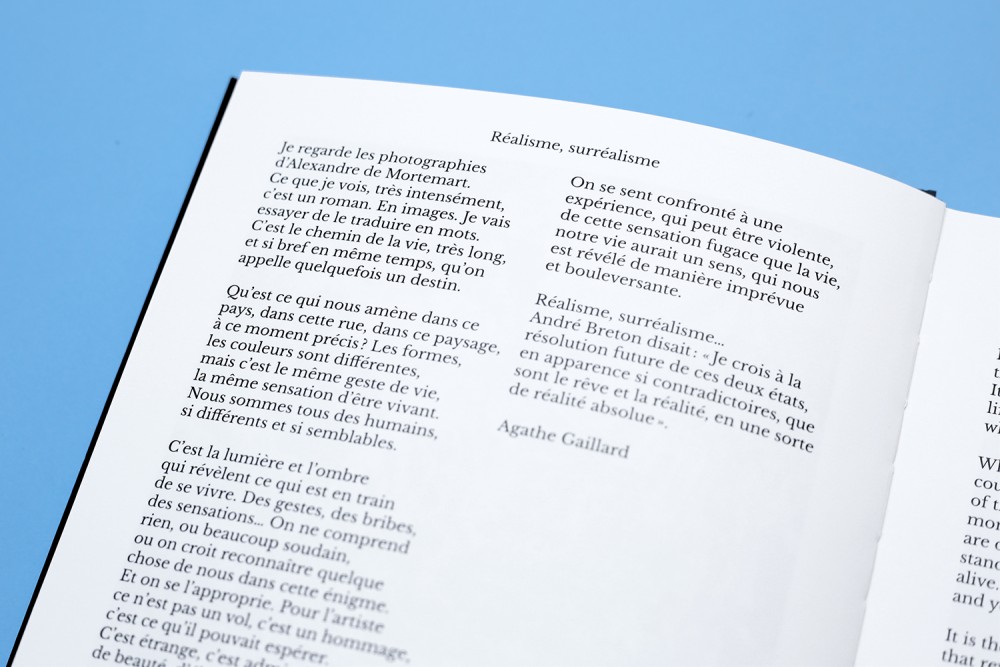 Réalisme, surréalisme
Je regarde les photographies
d’Alexandre de Mortemart.
Ce que je vois, très intensément,
c’est un roman. En images. Je vais
essayer de le traduire en mots.
C’est le chemin de la vie, très long,
et si bref en même temps, qu’on
appelle quelquefois un destin.
Qu’est ce qui nous amène dans ce
pays, dans cette rue, dans ce paysage,
à ce moment précis ? Les formes,
les couleurs sont différentes,
mais c’est le même geste de vie,
la même sensation d’être vivant.
Nous sommes tous des humains,
si différents et si semblables.
C’est la lumière et l’ombre
qui révèlent ce qui est en train
de se vivre. Des gestes, des bribes,
des sensations… On ne comprend
rien, ou beaucoup soudain,
ou on croit reconnaître quelque
chose de nous dans cette énigme.
Et on se l’approprie. Pour l’artiste
ce n’est pas un vol, c’est un hommage,
c’est ce qu’il pouvait espérer.
C’est étrange, c’est
de beauté,
On se sent confronté à une
expérience, qui peut être violente,
de cette sensation fugace que la vie,
notre vie aurait un sens, qui nous
est révélé de manière imprévue
et bouleversante.
Réalisme, surréalisme…
André Breton disait : « Je crois à la
résolution future de ces deux états,
en apparence si contradictoires, que
sont le rêve et la réalité, en une sorte
de réalité absolue ».
Agathe Gaillard
It
wh
Wh
cou
of t
mor
are o
stand
alive.
and y
It is th
that re